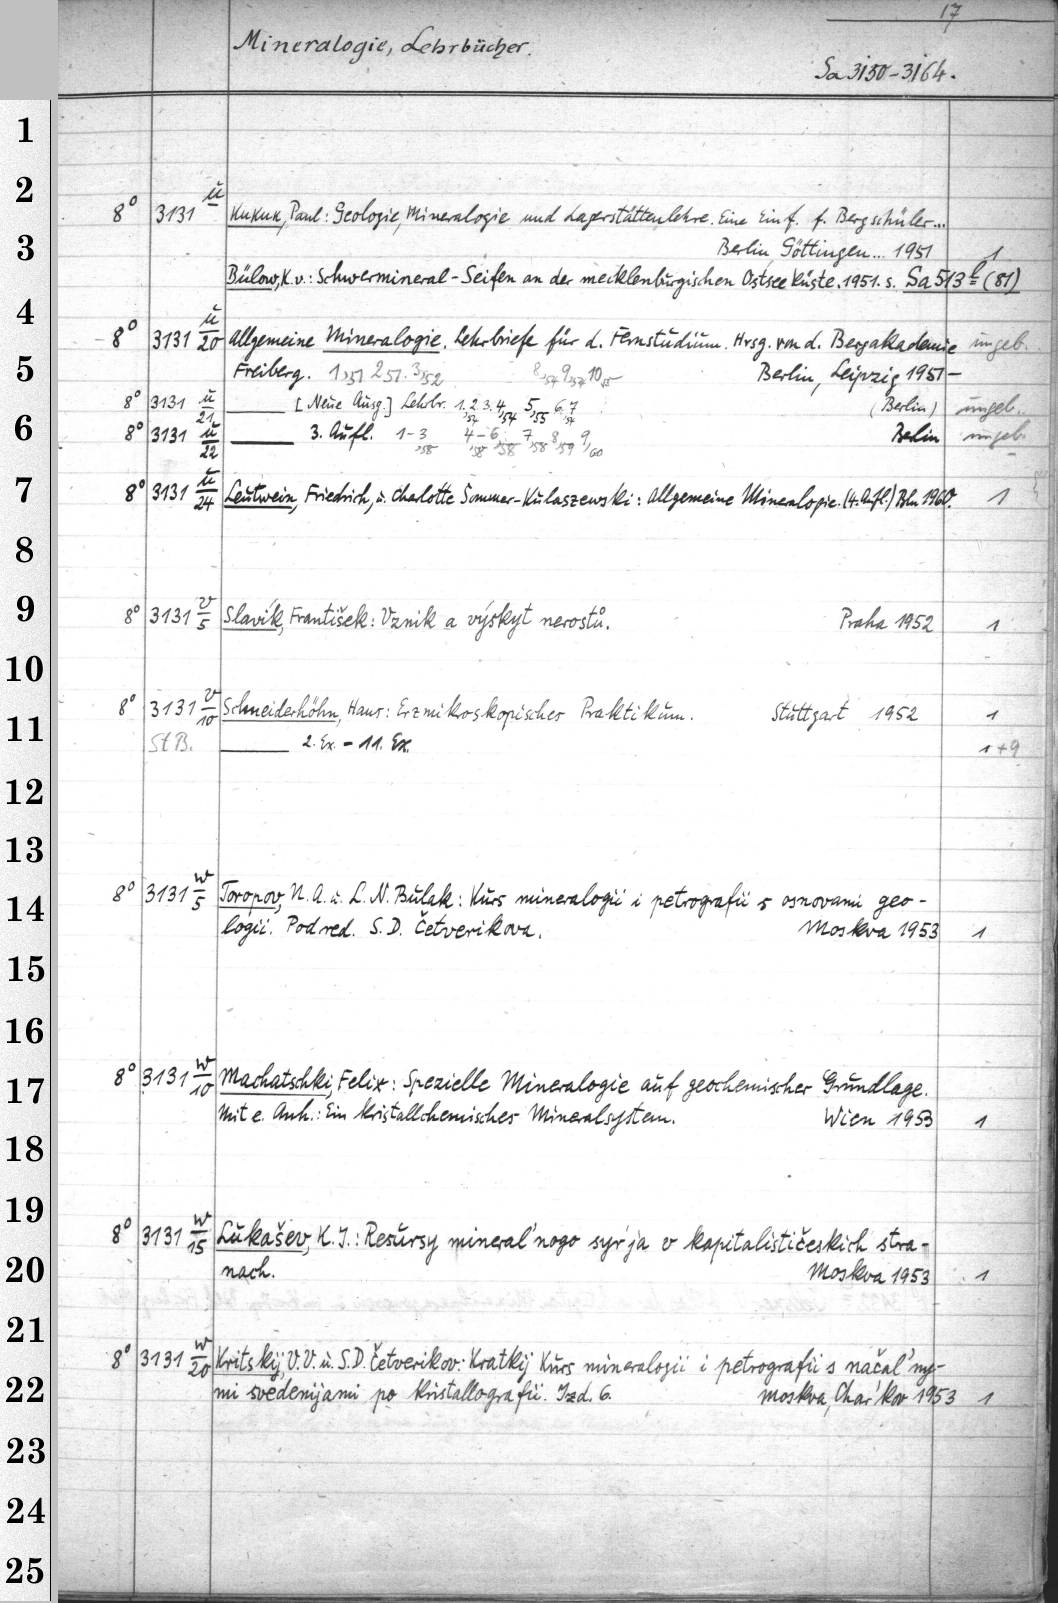 17
Mineralogie, Lehrbücher.
Sa 3130-3164.
8° 3131 u Kukuk, Paul: Geologie, Mineralogie und Lagerstättenlehre. Eine Einf. f. Bergschüler...
Berlin, Göttingen... 1951 1
Bülow, K. v.: Schwermineral-Seifen an der mecklenburgischen Ostseeküste. 1951. s. Sa 513 (81)
8° 3131 u/20 Allgemeine Mineralogie. Lehrbriefe für d. Fernstudium. Hrsg. von d. Bergakademie ungeb.
Freiberg. 1,51 2 51. 3,52 8,54 9,54 10,55 Berlin, Leipzig 1951-
8° 3131 u/21 [Neue Ausg.] Lehrbr. 1. 2 3. 4,54 5,55 6. 7 (Berlin) ungeb.
8° 3131 u/22 3. Aufl. 1-3,58 4-6,58 7,58 8,59 9,60 Berlin ungeb.
8° 3131 u/24 Leutwein, Friedrich, u. Charlotte Sommer-Kulaszewski: Allgemeine Mineralogie. (4. Aufl.) Bln 1960. 1
8° 3131 v/5 Slavík, František: Vznik a výskyt nerostů. Praha 1952 1
8° 3131 v/10 Schneiderhöhn, Hans: Erzmikroskopisches Praktikum. Stuttgart 1952 1
St B. 2. Ex. - 11. Ex. 1+9
8° 3131 w/5 Toropov, N. A. u. L. N. Bulak: Kurs mineralogii i petrografii s osnovami geo-
logii. Pod red. S. D. Četverikova. Moskva 1953 1
8° 3131 w/10 Machatschki, Felix: Spezielle Mineralogie auf geochemischer Grundlage.
Mit e. Anh.: Ein kristallchemisches Mineralsystem. Wien 1953 1
8° 3131 w/15 Lukašev, K. I.: Resursy mineral'nogo syr'ja v kapitalističeskich stra-
nach. Moskva 1953 1
8° 3131 w/20 Kritskij, V. V. u. S. D. Četverikov: Kratkij kurs mineralogii i petrografii s načal'ny-
mi svedenijami po kristallografii. Izd. 6. Moskva, Char'kov 1953 1
1
2
3
4
5
6
7
8
9
10
11
12
13
14
15
16
17
18
19
20
21
22
23
24
25